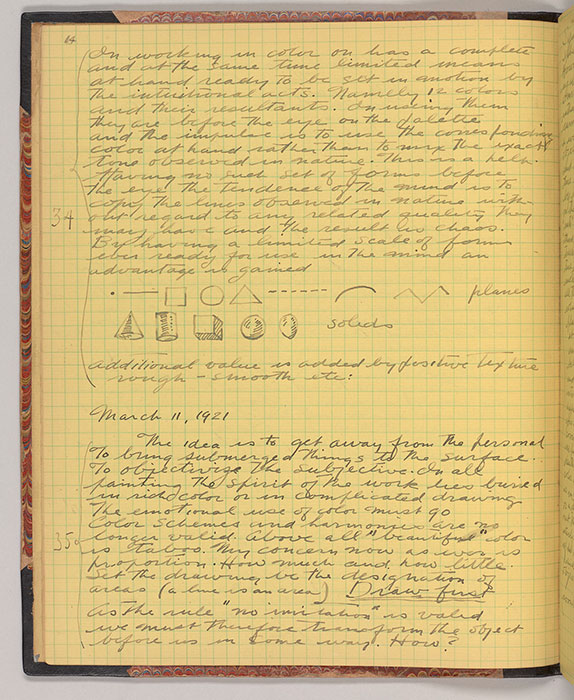 64
In working in color on has a complete
and at the same time limited means
at hand ready to be set in motion by
the intuitional acts. Namely 12 colors
and their resultants. In using them
they are before the eye on the palette
and the impulse is to use the corresponding
color at hand rather than to mix the exact
tone observed in nature. This is a help.
Having no such set of forms before
the eye the tendence of the mind is to
copy the lines observed in nature with-
34 out regard to any related quality they
may have and the result is chaos.
By having a limited scale of forms
ever ready for use in the mind an
advantage is gained
planes
solids
additional value is added by positive texture
rough - smooth etc:
March 11, 1921
The idea is to get away from the personal
To bring submerged things to the surface.
To objectivize the subjective. In all
painting the spirit of the work lies buried
in rich color or in complicated drawing
The emotional use of color must go
Color schemes and harmonies are no
35 longer valid. above all "beautiful" color
is taboo. My concern now as ever is
proportion. How much and how little.
Let the drawing be the designation of
areas (a line is an area) Draw first
As the rule "no imitation" is valid
we must therefore transform the object
before us in some way. How?